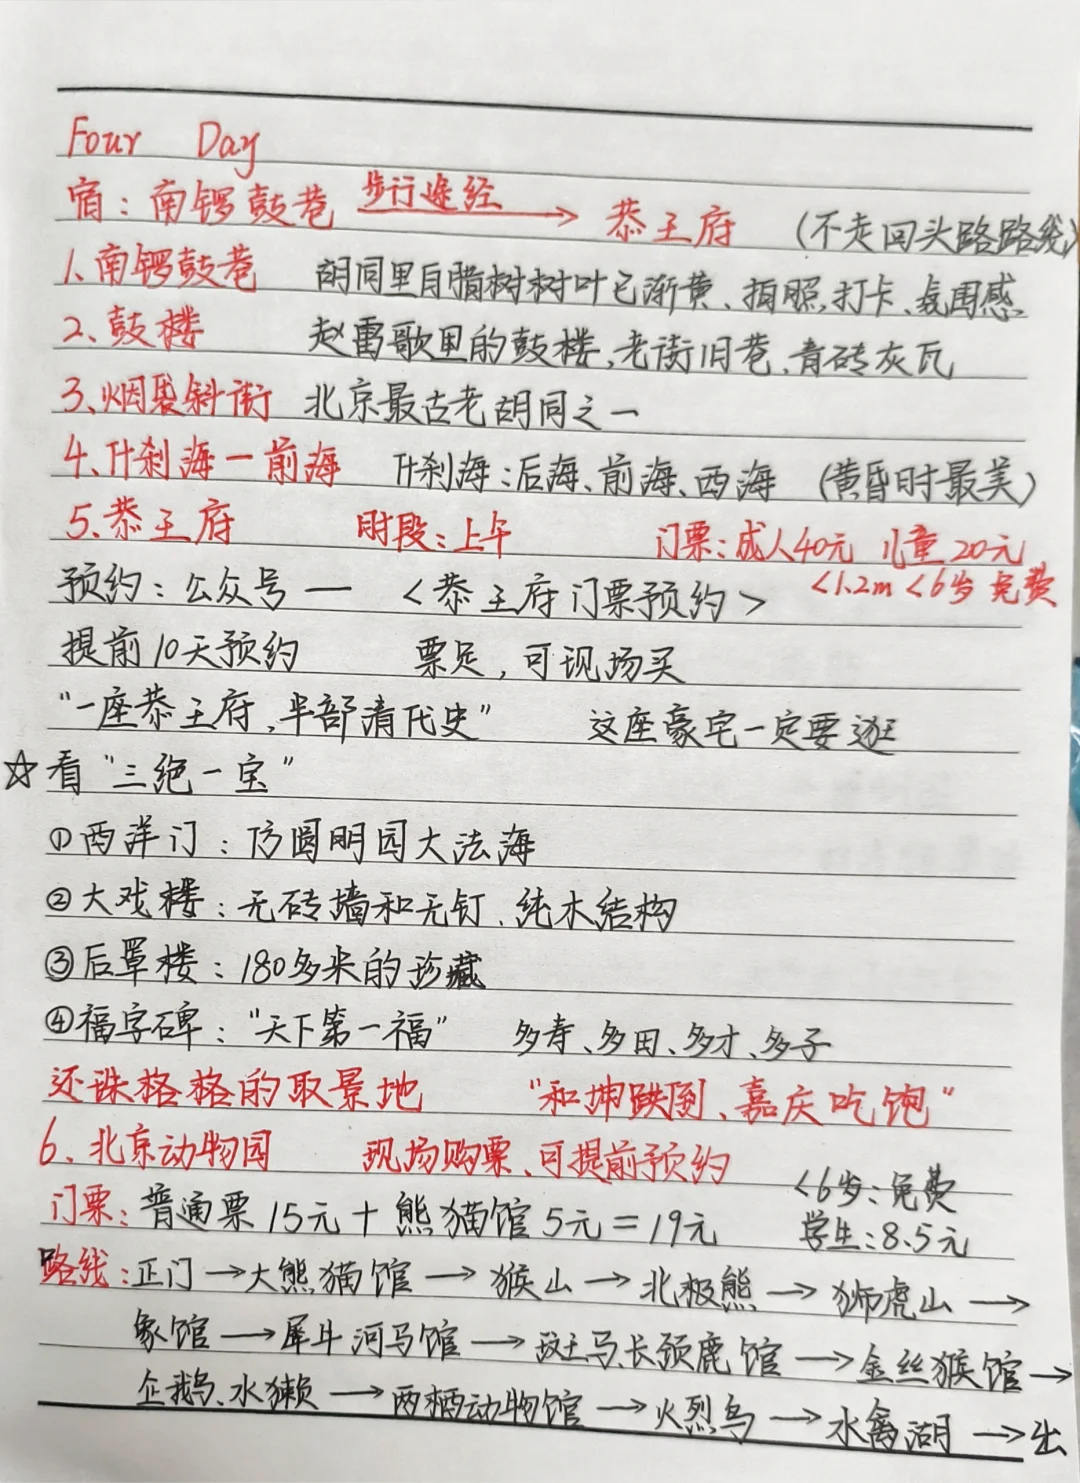 Four Day
宿：南锣鼓巷 步行途经→ 恭王府 （不走回头路路线）
1、南锣鼓巷 胡同里自腊树树叶已渐黄、拍照、打卡、氛围感
2、鼓楼 赵雷歌里的鼓楼，老街旧巷、青砖灰瓦
3、烟袋斜街 北京最古老胡同之一
4、什刹海一前海 什刹海：后海、前海、西海 （黄昏时最美）
5、恭王府 时段：上午 门票：成人40元 儿童20元
<1.2m <6岁 免费
预约：公众号一 <恭王府门票预约>
提前10天预约 票足，可现场买
“一座恭王府，半部清代史” 这座豪宅一定要逛
☆看“三绝一宝”
①西洋门：仿圆明园大法海
②大戏楼：无砖墙和无钉、纯木结构
③后罩楼：180多米的珍藏
④福字碑：“天下第一福” 多寿、多田、多才、多子
还珠格格的取景地 “和坤跌倒、嘉庆吃饱”
6、北京动物园 现场购票、可提前预约
<6岁：免费
门票：普通票15元＋熊猫馆5元＝19元 学生：8.5元
路线：正门→大熊猫馆→猴山→北极熊→狮虎山→
象馆→犀牛河马馆→斑马、长颈鹿馆→金丝猴馆→
企鹅、水獭→两栖动物馆→火烈鸟→水禽湖→出